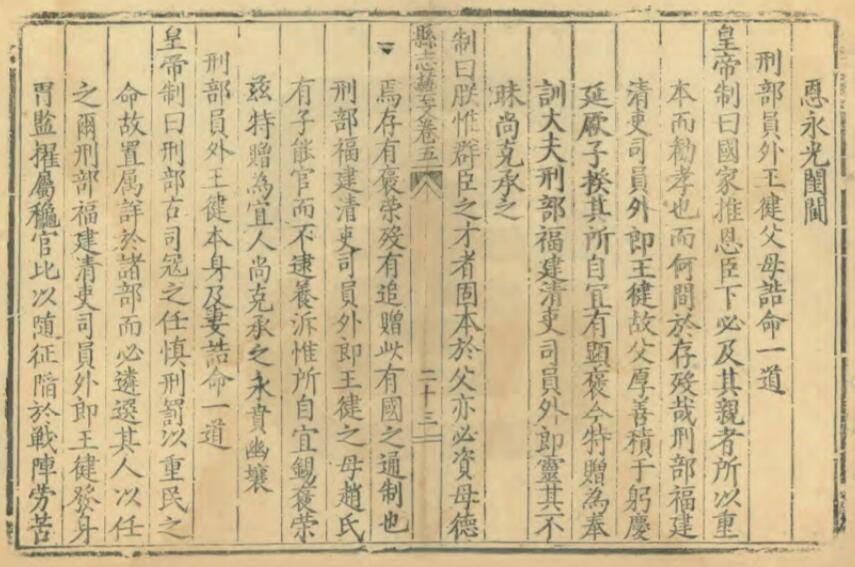 恩永光閨閫
刑部員外王健父母誥命一道
皇帝制曰國家推恩臣下必及其親者所以重
本而勸孝也而何間於存殁哉刑部福建
清吏司員外郎王健故父厚善積于躬慶
延厥子揆其所自宜有顯褒今特贈為奉
訓大夫刑部福建清吏司員外郎靈其不
昧尚克承之
制曰朕惟群臣之才者固本於父亦必資母德
縣志藝文卷五
二十三
焉存有褒荣殁有追贈此有國之通制也
刑部福建清吏司員外郎王健之母趙氏
有子能官而不逮養泝惟所自宜錫褒荣
兹特贈為宜人尚克承之永賁幽壤
刑部員外王健本身及妻誥命一道
皇帝制曰刑部古司冦之任慎刑罰以重民之
命故置属詳於諸部而必遴選其人以任
之爾刑部福建清吏司員外郎王健發身
胄監擢屬穐官比以随征陪於戦陣劳苦